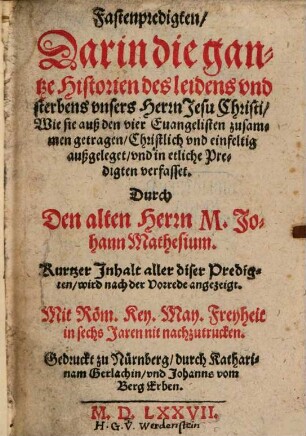 Fastenpredigten/
Darin die gan-
tze Historien des leidens vnd
sterbens vnsers Herrn Jesu Christi/
Wie sie auß den vier Euangelisten zusam-
men getragen/ Christlich vnd einfeltig
außgeleget/ vnd in etliche Pre-
digten verfasset.
Durch
Den alten Herrn M. Jo-
hann Mathesium.
Kurtzer Inhalt aller diser Predig-
ten/ wird nach der Vorrede angezeigt.
Mit Röm. Key. May. Freyheit
in sechs Jaren nit nachzutrucken.
Gedruckt zu Nürnberg/ durch Kathari-
nam Gerlachin/ vnd Johanns vom
Berg Erben.
M. D. LXXVII.
H. G. V. Werdenstein